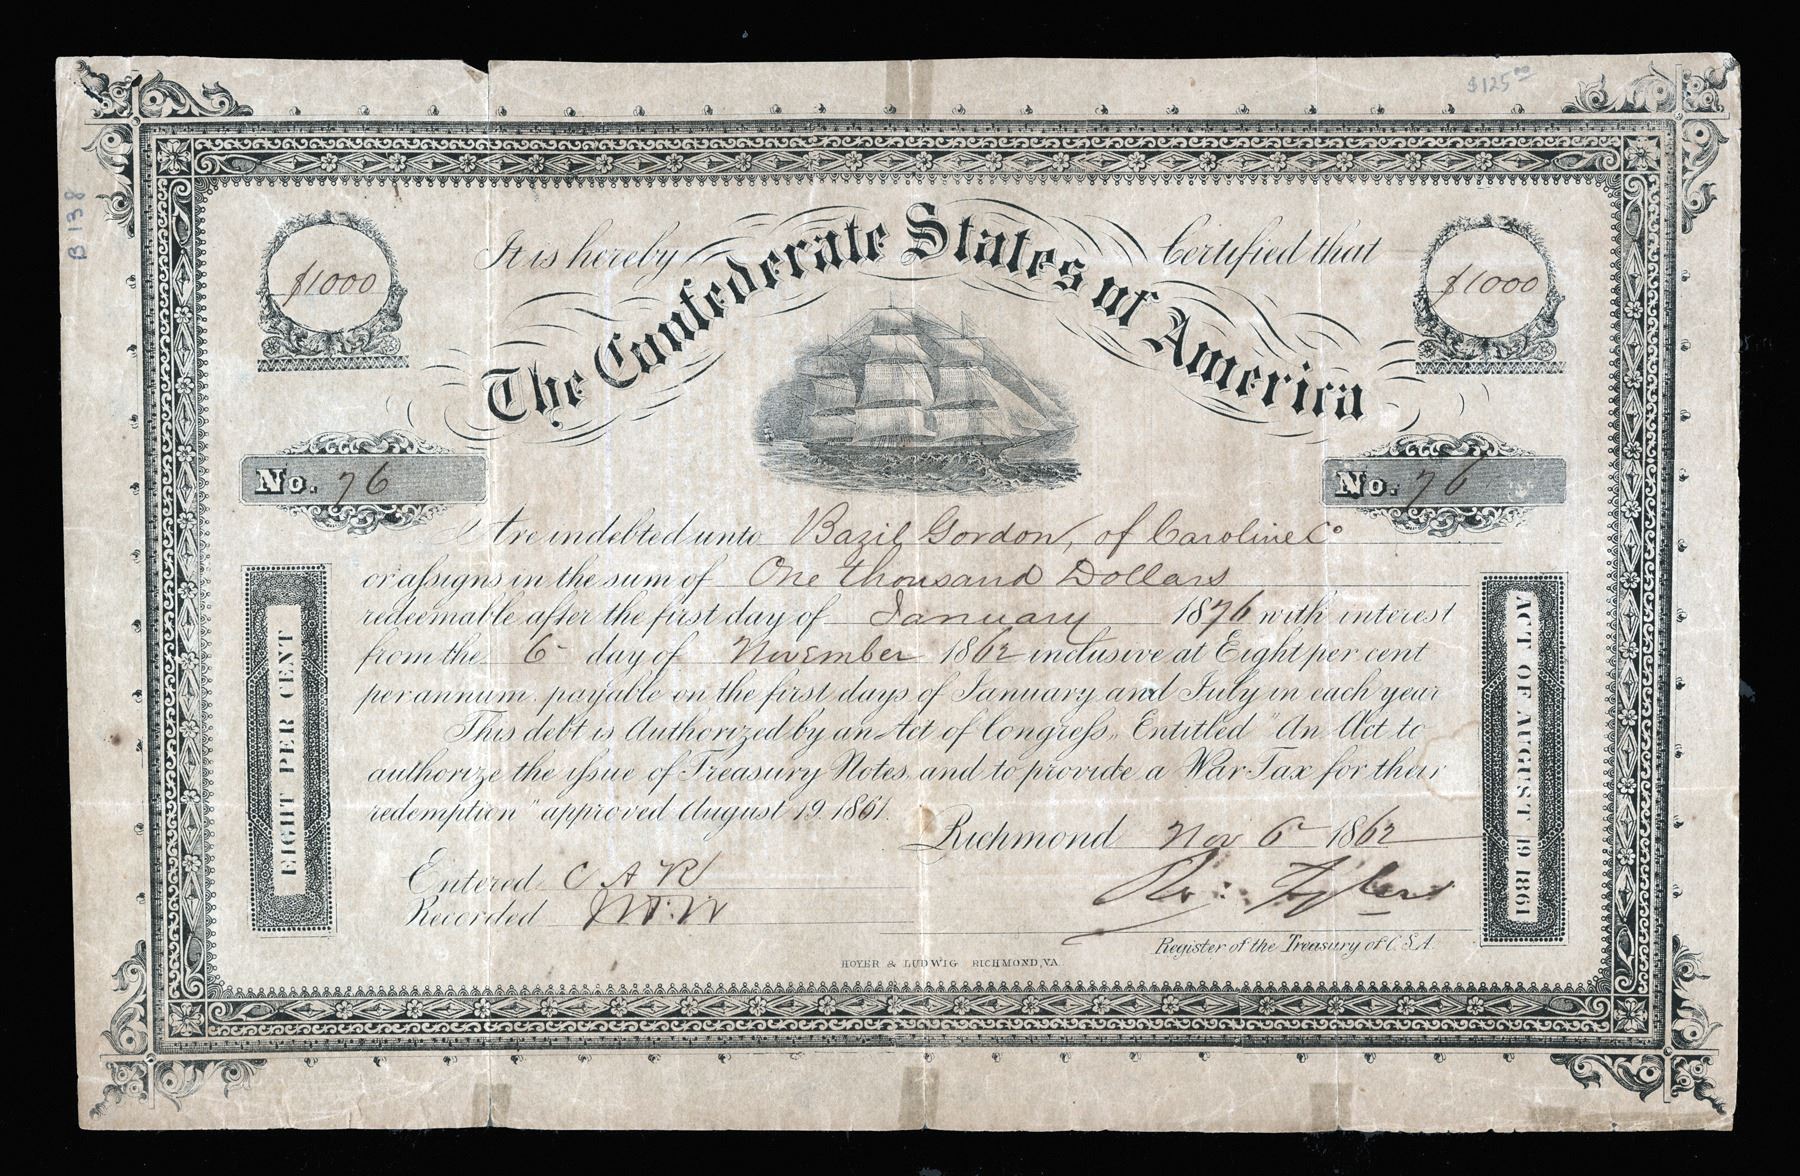 $125.00
B138
It is hereby Certified that
The Confederate States of America
$1000
$1000
No. 76
No. 76
Are indebted unto Bazil Gordon, of Caroline Co
or assigns in the sum of One Thousand Dollars
redeemable after the first day of January 1876 with interest
from the 6 day of November 1862 inclusive at Eight per cent
per annum. payable on the first days of January and July in each year
This debt is Authorized by an Act of Congress, Entitled "An Act to
authorize the issue of Treasury Notes, and to provide a War Tax for their
redemption" approved August 19. 1861.
EIGHT PER CENT
ACT OF AUGUST 19 1861
Richmond Nov 6 1862
Entered C A R
Recorded
Ro: Tyler
Register of the Treasury of C. S. A.
HOYER & LUDWIG RICHMOND, VA.